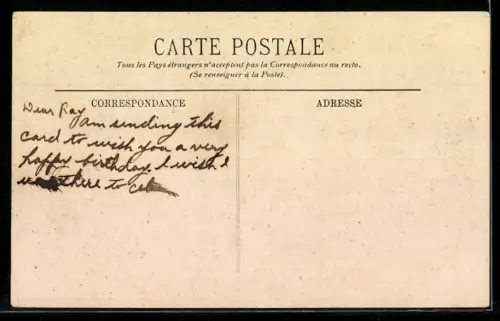 CARTE POSTALE
Tous les Pays étrangers n'acceptent pas la Correspondance au recto.
(Se renseigner à la Poste).
CORRESPONDANCE
ADRESSE
Dear Ray
am sending this
card to wish you a very
happy birthday. I wish I
there to